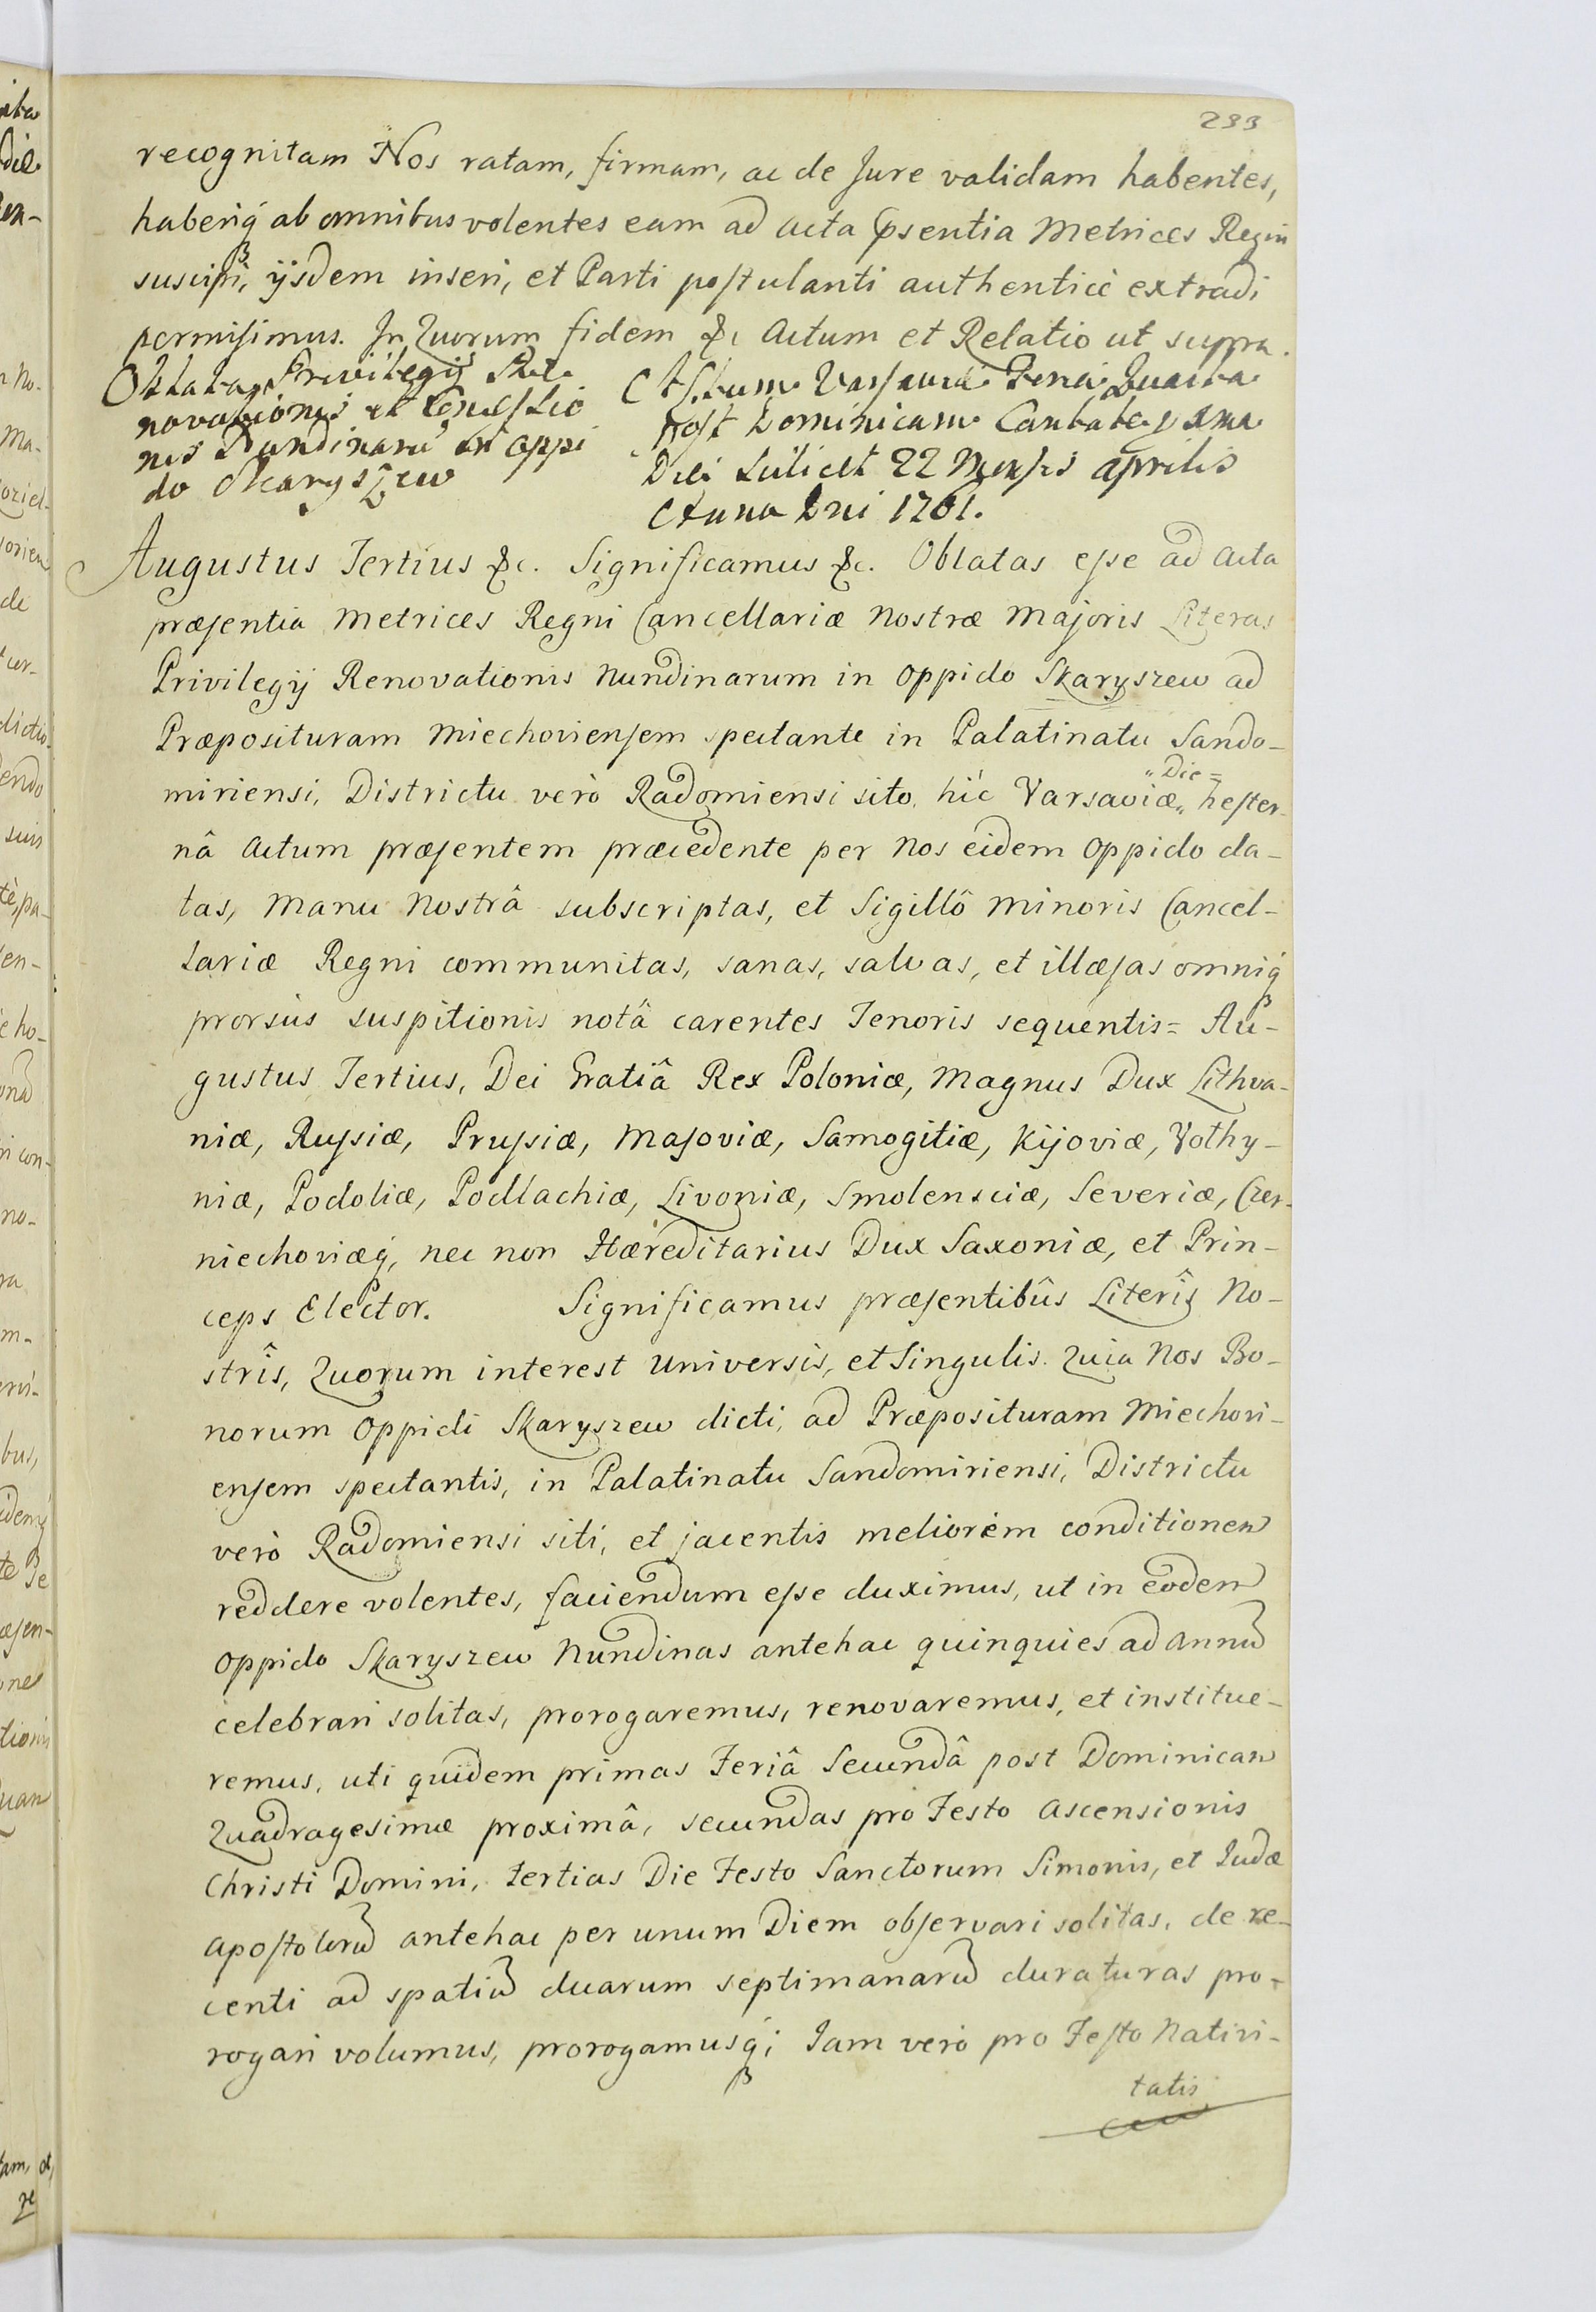 233
recognitam Nos ratam, firmam, ac de Jure validam habentes,
haberiq́ ab omnibus volentes eam ad acta p̄sentia Metrices Regni
suscipi, ijsdem inseri, et Parti postulanti authenticè extradi
permisimus. In Quorum fidem &c Actum et Relatio ut supra.
Oblata Privilegij Re-
novationis et Concessio
nis Nundinarū in oppi
do Skaryszew
Actum Varsaviæ Feria Quarta
post Dominicam Cantate proxima
Die scilicet 22 Mensis Aprilis
Anno Dni 1761.
Augustus Tertius &c. Significamus &c. Oblatas esse ad Acta
præsentia Metrices Regni Cancellariæ Nostræ Majoris Literas
Privilegij Renovationis Nundinarum in Oppido Skaryszew ad
Præposituram Miechoviensem spectante in Palatinatu Sando-
miriensi, Districtu verò Radomiensi sito, hîc Varsaviæ „Die= hester-
nâ Actum præsentem præcedente per Nos eidem Oppido da-
tas, Manu Nostrâ subscriptas, et Sigillô Minoris Cancel-
lariæ Regni communitas, sanas, salvas, et illæsas omniq́
prorsùs suspitionis notâ carentes Tenoris sequentis= Au-
gustus Tertius, Dei Gratiâ Rex Poloniæ, Magnus Dux Lithva-
niæ, Russiæ, Prussiæ, Masoviæ, Samogitiæ, Kijoviæ, Volhy-
niæ, Podoliæ, Podlachiæ, Livoniæ, Smolensciæ, Severiæ, Czer-
niechoviæq́, nec non Hæreditarius Dux Saxoniæ, et Prin-
ceps Elector. Significamus præsentibûs Literîs No-
strîs, Quorum interest Universis, et Singulis. Quia Nos Bo-
norum Oppidi Skaryszew dicti, ad Præposituram Miechovi-
ensem spectantis, in Palatinatu Sandomiriensi, Districtu
verò Radomiensi siti, et jacentis meliorem conditionem
reddere volentes, faciendum esse duximus, ut in eodem
Oppido Skaryszew Nundinas antehac quinquies ad Annū
celebrari solitas, prorogaremus, renovaremus, et institue-
remus, uti quidem primas Feriâ Secundâ post Dominicam
Quadragesimæ proximâ, secundas pro Festo Ascensionis
Christi Domini, tertias Die Festo Sanctorum Simonis, et Judæ
Apostolorū antehac per unum Diem observari solitas, de re-
centi ad spatiū duarum septimanarū duraturas pro-
rogari volumus, prorogamusq́; Jam verò pro Festo Nativi-
tatis